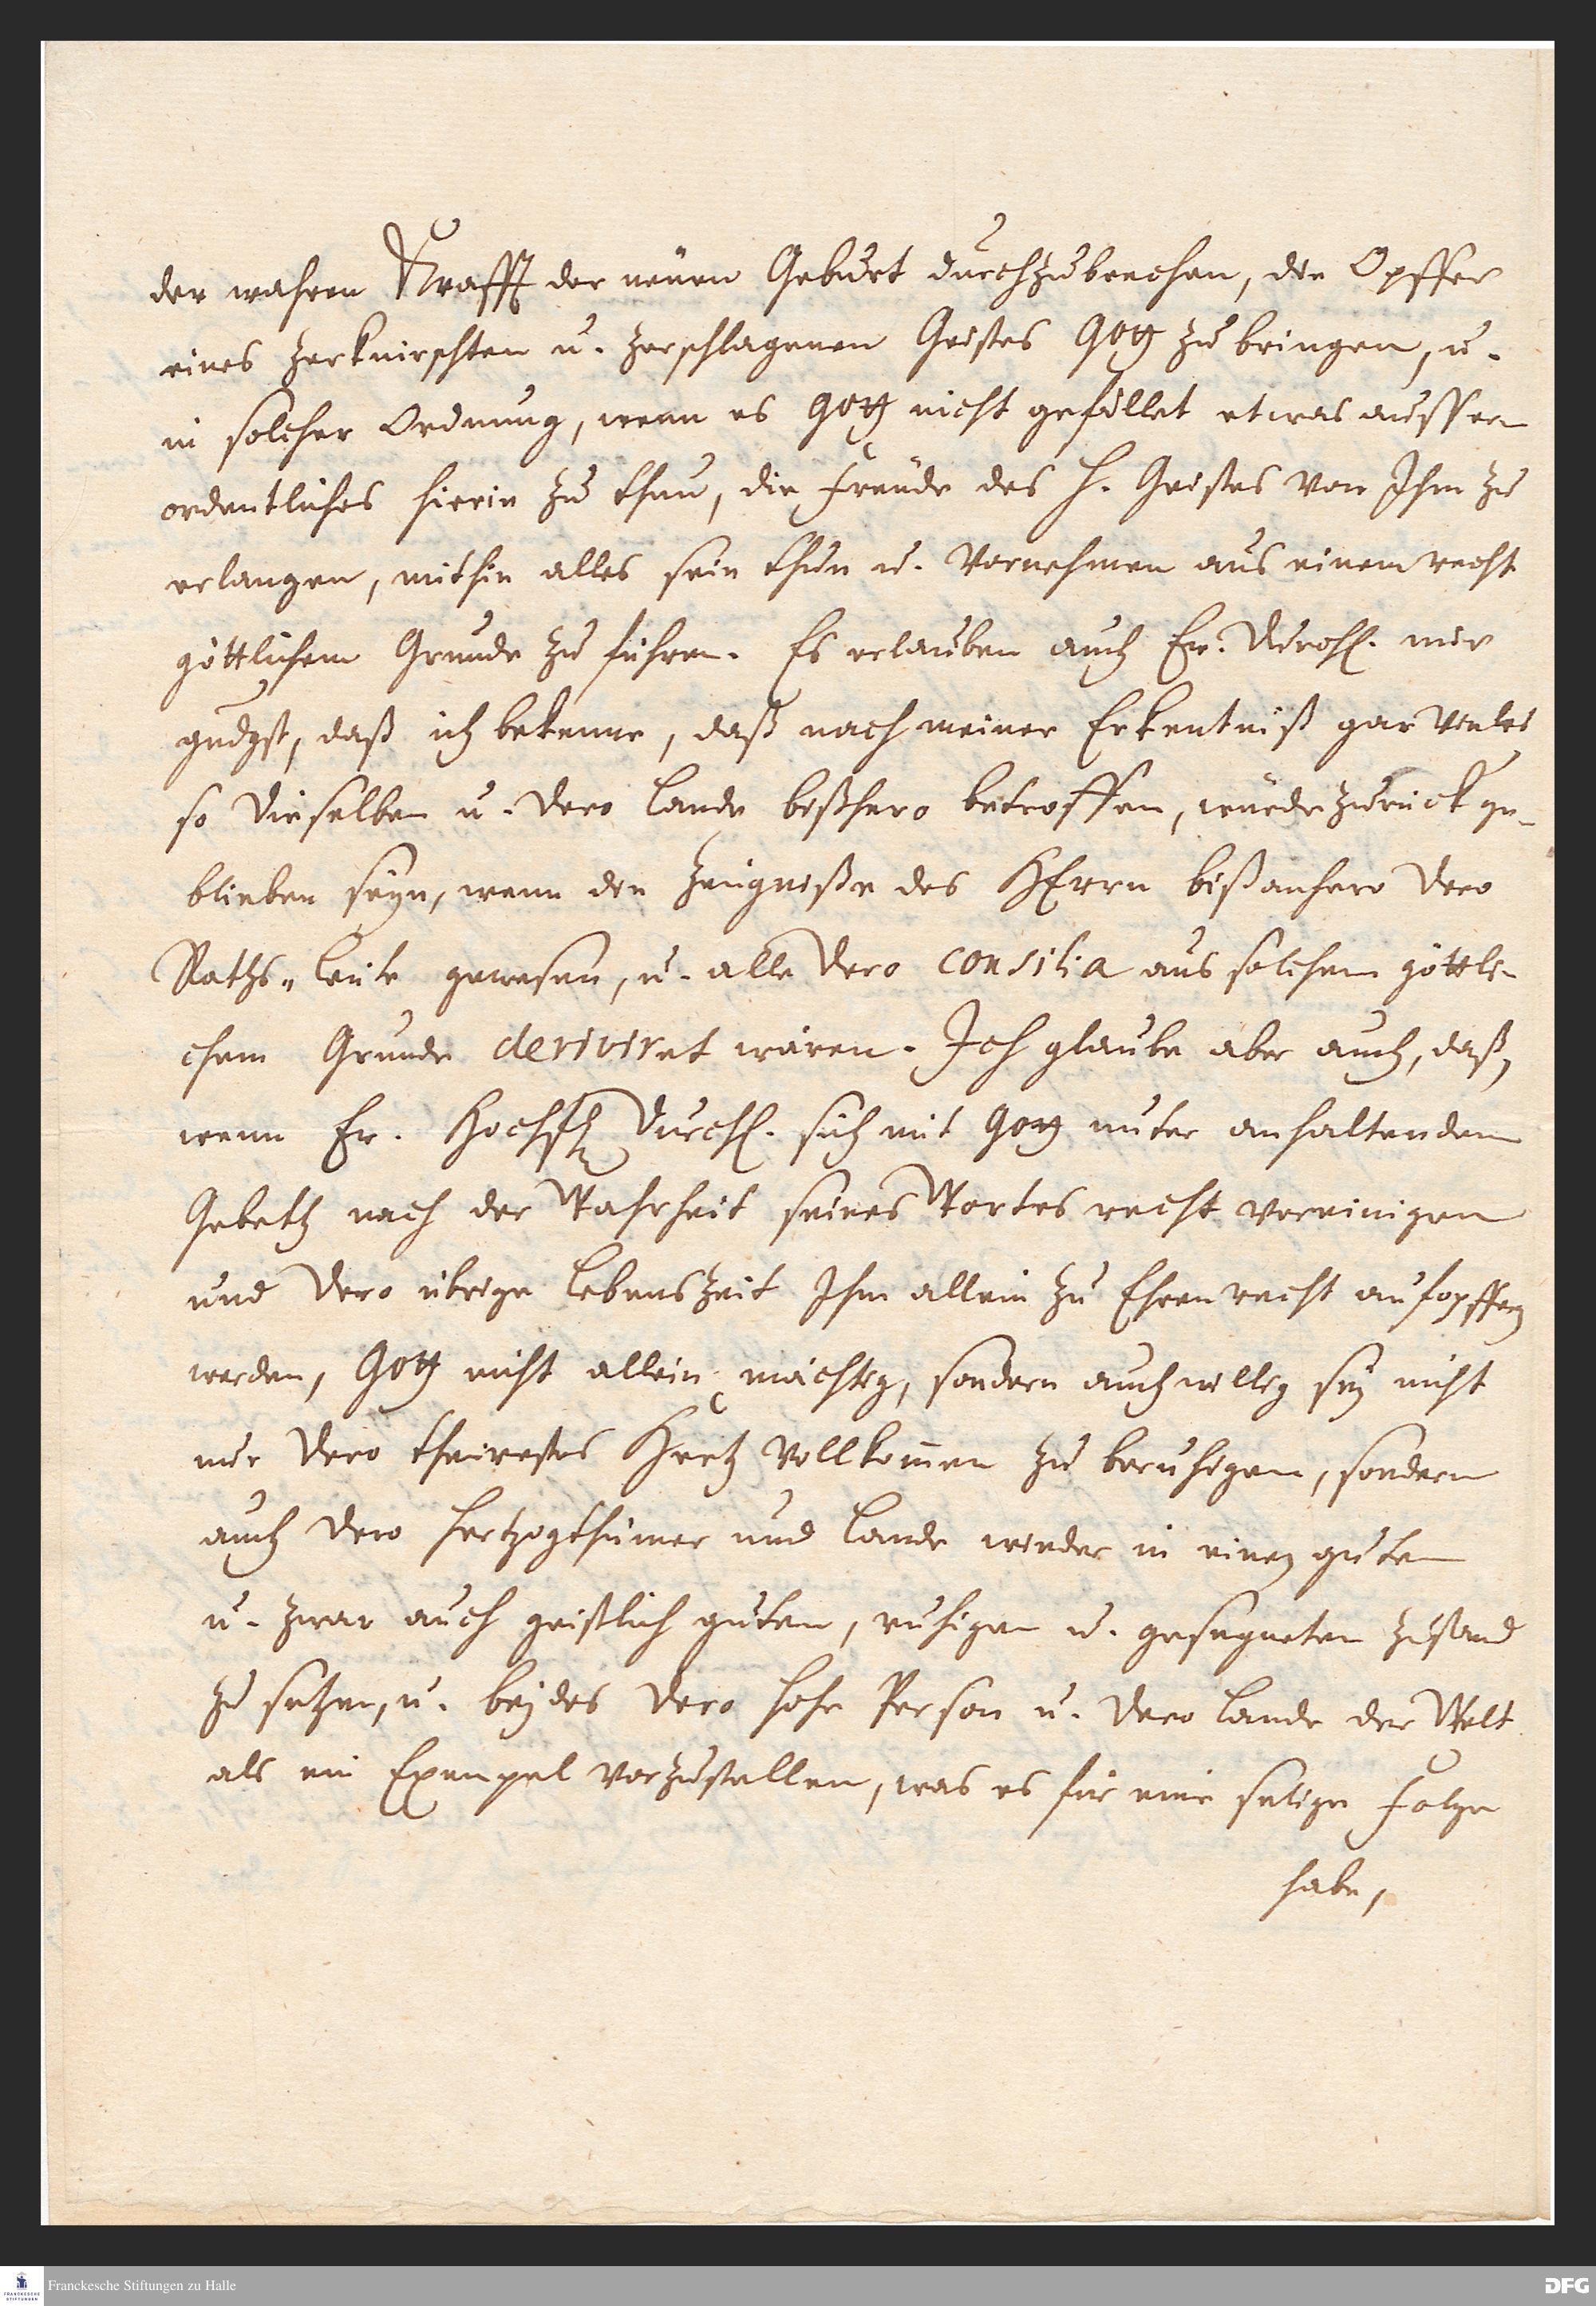 der wahren Krafft der neüen Geburt durchzubrechen, die Opffer
eines zerknirschten u. zerschlagenen Geistes Gott zu bringen, u.
in solcher Ordnung, wenn es Gott nicht gefället etwas ausser-
ordentliches hierin zu thun, die Freüde des H. Geistes von Ihm zu
erlangen, mithin alles sein thun u. Vornehmen aus einem recht
göttlichem Grunde zu führen. Es erlauben auch Ew. Durchl. mir
gndgst, daß ich bekenne, daß nach meiner Erkentniß gar vieles
so dieselben u. dero Lande bißhero betroffen, würde zurück ge-
blieben seyn, wenn die Zeügniße des HErrn bißanhero dero
Raths-Leüte gewesen, u. alle dero consilia aus solchem göttli-
chem Grunde deriviret wären. Ich glaube aber auch, daß,
wenn Ew. Hochfl Durchl. sich mit Gott unter anhaltendem
Gebeth nach der Wahrheit seines Wortes recht vereinigen
und dero übrige Lebenszeit Ihm allein zu Ehren recht aufopffern
werden, Gott nicht allein mächtig, sondern auch willig sey nicht
nur dero theürestes Hertz vollkom̄en zu beruhigen, sondern
auch dero Hertzogthümer und Lande wieder in einen guten
u. zwar auch geistlich guten, ruhigen u. gesegneten Zustand
zu setzen, u. beydes dero hohe Person u. dero Lande der Welt
als ein Exempel vorzustellen, was es für eine selige Folge
habe,
Franckesche Stiftungen zu Halle
DFG